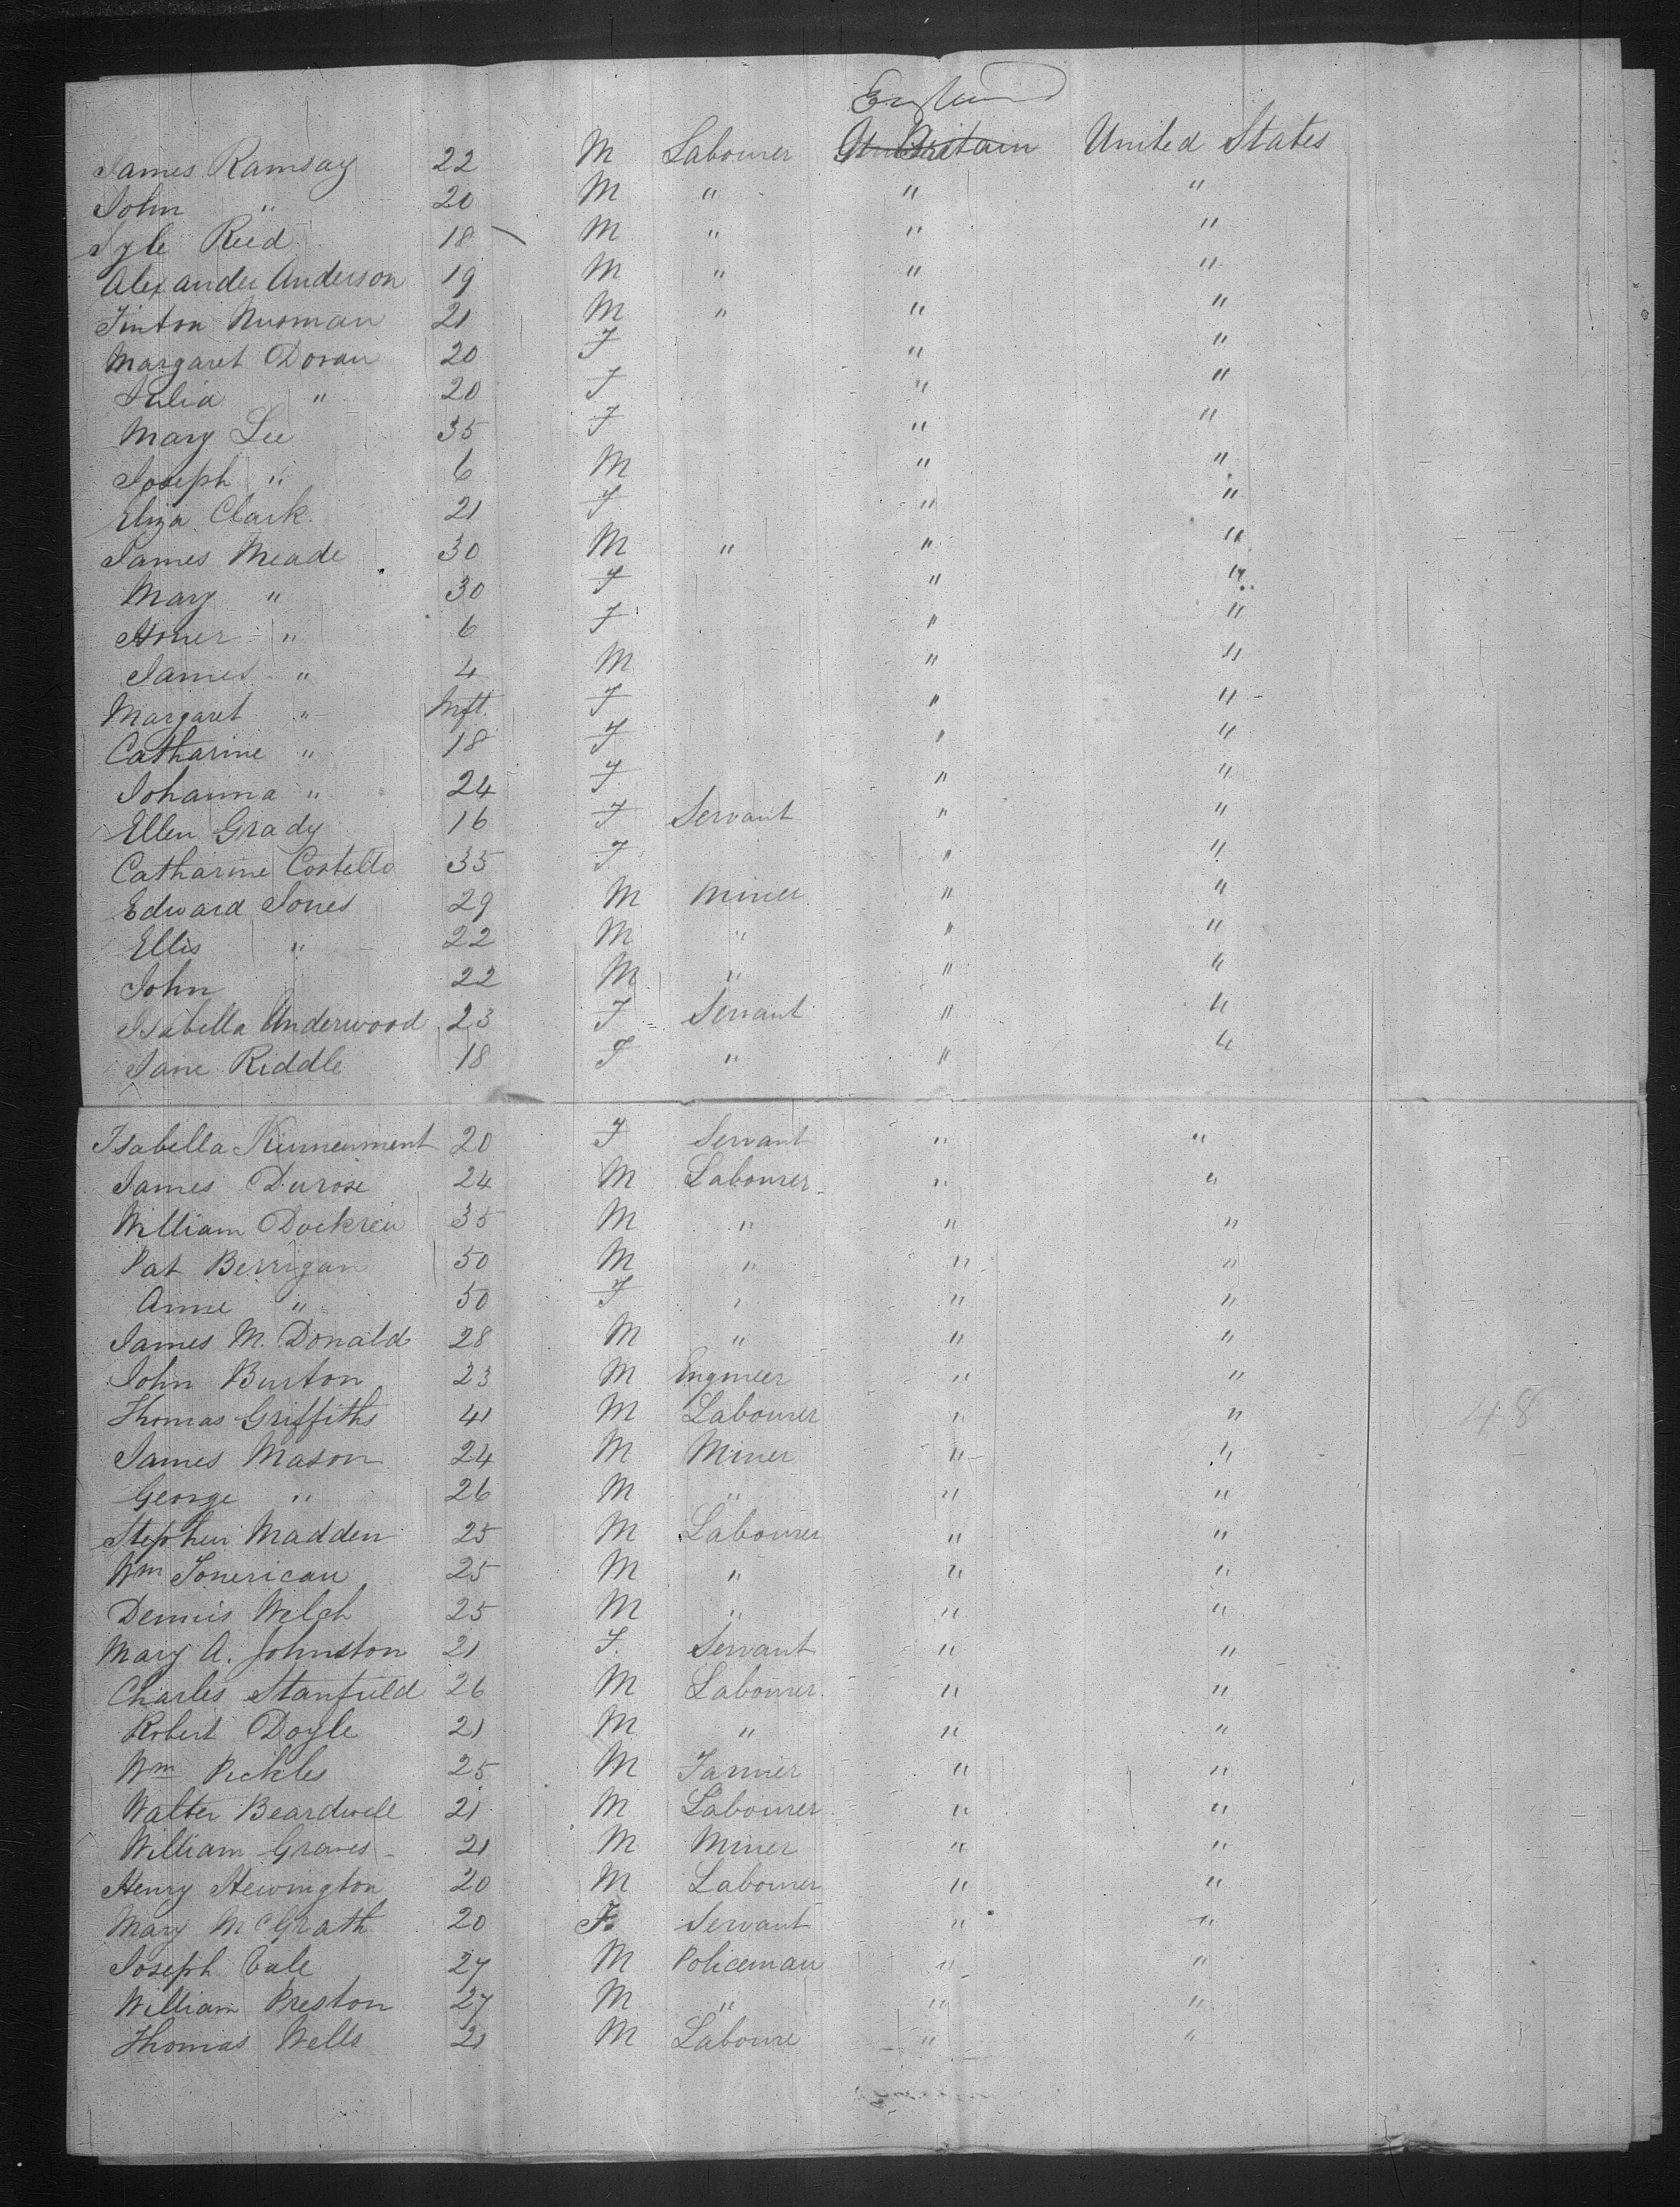 England
James Ramsay 22 M Labourer Gt Britain United States
John " 20 M " " "
Lyle Reed 18 M " " "
Alexander Anderson 19 M " " "
Finton 21 M " " "
Margaret Doran 20 F " "
Julia " 20 F " "
Mary Lee 35 F " "
Joseph " 6 M " "
Eliza Clark 21 F " "
James Meade 30 M " " "
Mary " 30 F " "
Honer " 6 F " "
James " 4 M " "
Margaret " Inft. F " "
Catharine " 18 F " "
Johanna " 24 F " "
Ellen Grady 16 F Servant " "
Catharine Costello 35 F " "
Edward Jones 29 M Miner " "
Ellis " 22 M " " "
John 22 M " " "
Isabella Underwood 23 F Servant " "
Jane Riddle 18 F " " "
Isabella 20 F Servant " "
James Durose 24 M Labourer " "
William 35 M " " "
Pat Berrigan 50 M " " "
Anne " 50 F " " "
James M. Donald 28 M " " "
John Burton 23 M Engineer " "
Thomas Griffiths 41 M Labourer " " 48
James Mason 24 M Miner " "
George " 26 M " " "
Stephen Madden 25 M Labourer " "
Wm 25 M " " "
Dennis Welch 25 M " " "
Mary A. Johnston 21 F. Servant " "
Charles Stanfield 26 M Labourer " "
Robert Doyle 21 M " " "
Wm Pickles 25 M Farmer " "
Walter Beardwell 21 M Labourer " "
William Graves 21 M Miner " "
Henry Hewington 20 M Labourer " "
Mary McGrath 20 F. Servant " "
Joseph 27 M Policeman " "
William Preston 27 M " " "
Thomas Wells 21 M Laboure " "